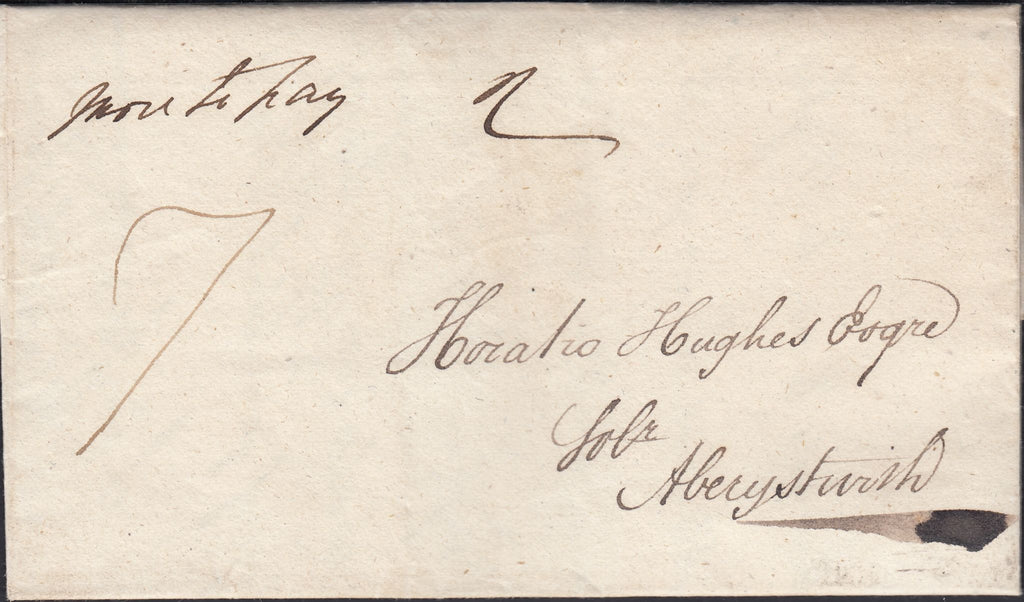 more to pay 2
7
Horatio Hughes Esqre
Solr
Aberystwith